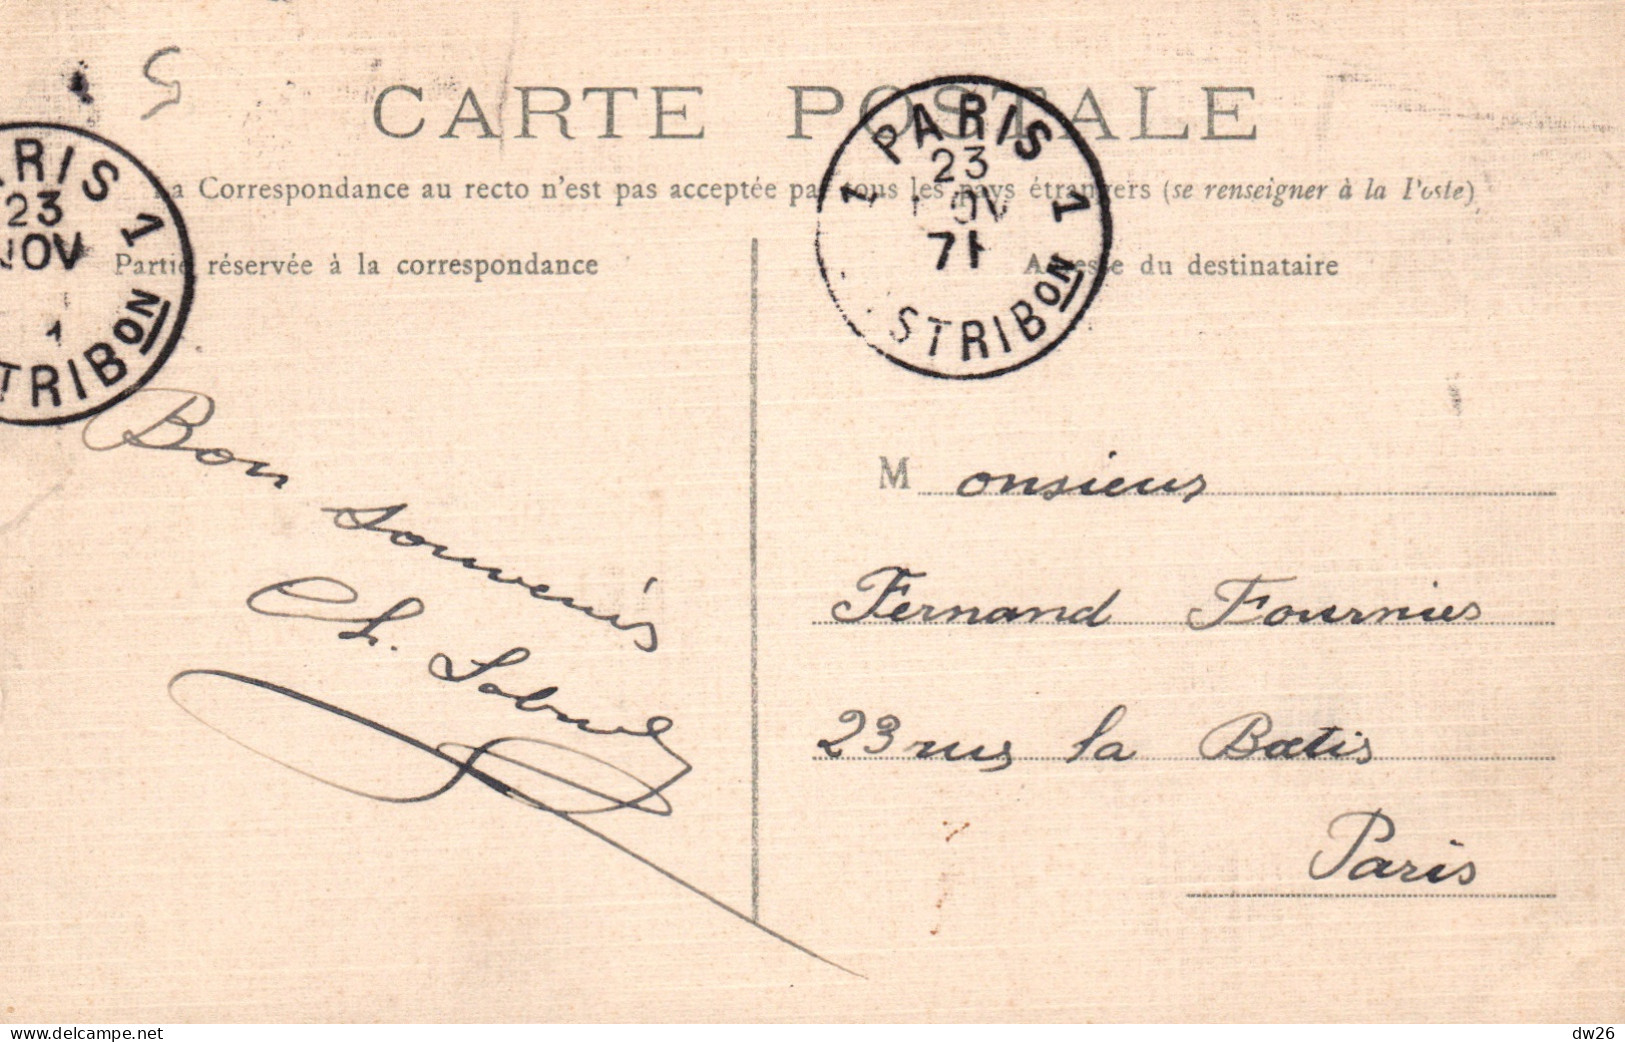 CARTE POSTALE
La Correspondance au recto n'est pas acceptée par tous les pays étrangers (se renseigner à la Poste)
Partie réservée à la correspondance
Adresse du destinataire
PARIS 1
23
NOV
TRIBON
1 PARIS 1
23
NOV
71
STRIBON
Bon souvenir
Ch.
Monsieur
Fernand Fournier
23 rue la Boetie
Paris
dw26